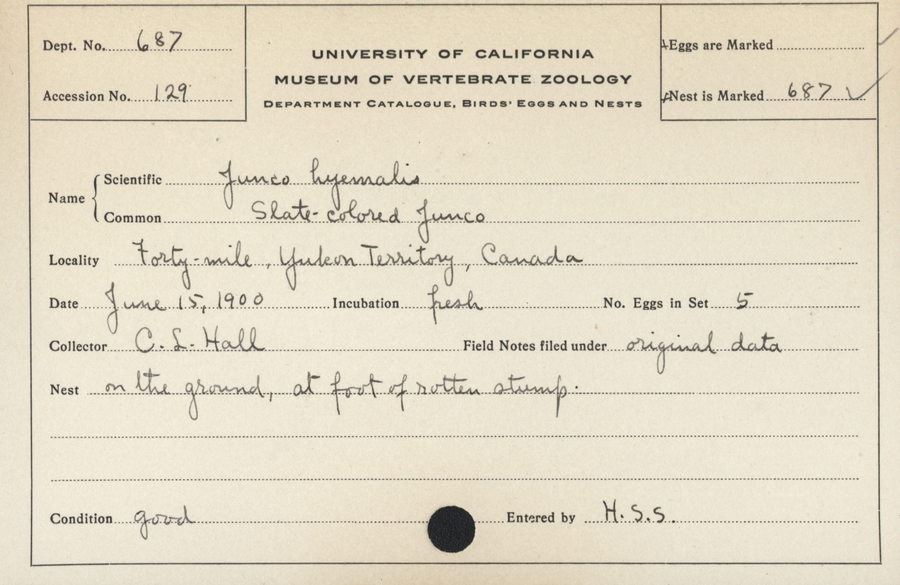 Dept. No. 687
UNIVERSITY OF CALIFORNIA
MUSEUM OF VERTEBRATE ZOOLOGY
DEPARTMENT CATALOGUE, BIRDS' EGGS AND NESTS
Accession No. 129
Eggs are Marked
Nest is Marked 687 ✓
Name { Scientific Junco hyemalis
Common Slate-colored Junco
Locality Forty-mile, Yukon Territory, Canada
Date June 15, 1900 Incubation fresh No. Eggs in Set 5
Collector C. L. Hall Field Notes filed under original data
Nest on the ground, at foot of rotten stump.
Condition good Entered by H.S.S.